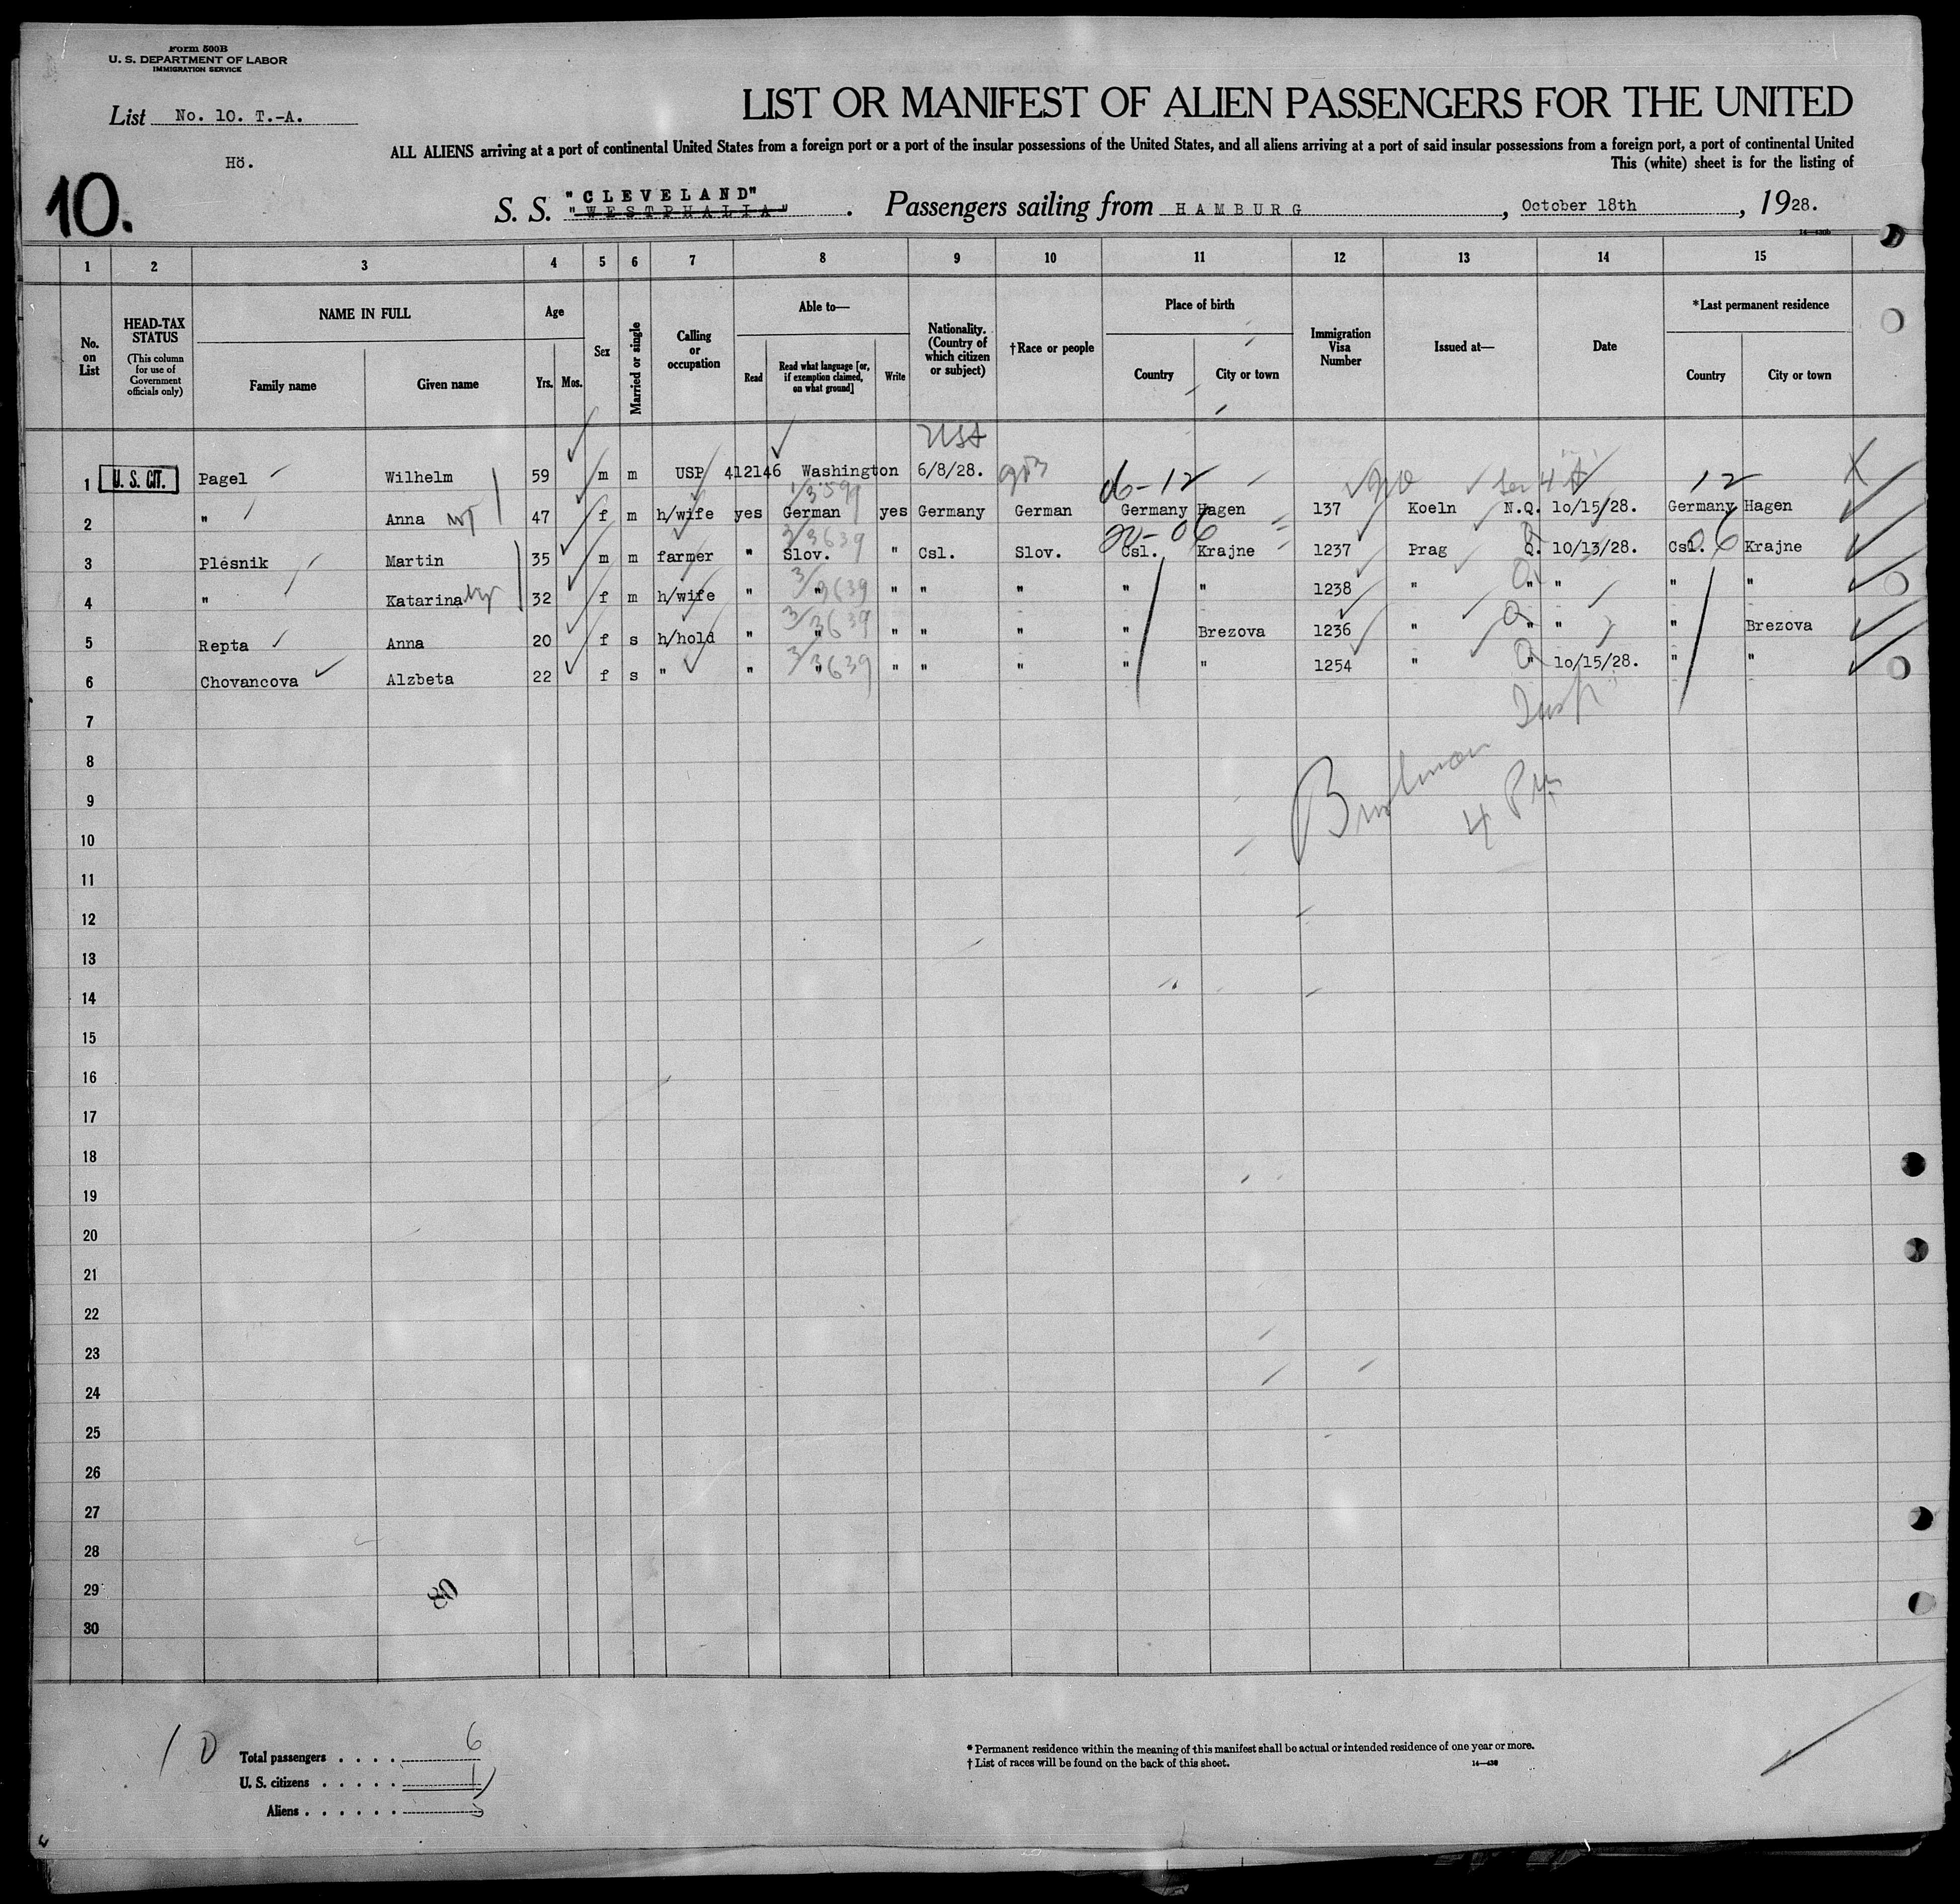 Form 500B
U. S. DEPARTMENT OF LABOR
IMMIGRATION SERVICE
List No. 10. T.-A.
Hö.
10.
LIST OR MANIFEST OF ALIEN PASSENGERS FOR THE UNITED
ALL ALIENS arriving at a port of continental United States from a foreign port or a port of the insular possessions of the United States, and all aliens arriving at a port of said insular possessions from a foreign port, a port of continental United
This (white) sheet is for the listing of
"CLEVELAND"
S. S. "WESTPHALIA". Passengers sailing from HAMBURG, October 18th, 1928.
1 2 3 4 5 6 7 8 9 10 11 12 13 14 15
No. on List
HEAD-TAX STATUS
(This column for use of Government officials only)
NAME IN FULL
Family name Given name
Age
Yrs. Mos.
Sex
Married or single
Calling or occupation
Able to—
Read Read what language [or, if exemption claimed, on what ground] Write
Nationality. (Country of which citizen or subject)
†Race or people
Place of birth
Country City or town
Immigration Visa Number
Issued at—
Date
*Last permanent residence
Country City or town
USA
1 U. S. CIT. Pagel Wilhelm 59 m m USP 412146 Washington 6/8/28.
06-12 12
2 " Anna 47 f m h/wife yes German yes Germany German Germany Hagen 137 Koeln N.Q. 10/15/28. Germany Hagen
20-06 06
3 Plesnik Martin 35 m m farmer " Slov. " Csl. Slov. Csl. Krajne 1237 Prag Q. 10/13/28. Csl. Krajne
3/3639
4 " Katarina 32 f m h/wife " " " " " " " 1238 " " " " "
3/3639
5 Repta Anna 20 f s h/hold " " " " " " Brezova 1236 " " " " Brezova
3/3639
6 Chovancova Alzbeta 22 f s " " " " " " " " 1254 " " 10/15/28. " "
3/3639
7
8
9
10
11
12
13
14
15
16
17
18
19
20
21
22
23
24
25
26
27
28
29
30
10
Total passengers . . . . 6
U. S. citizens . . . . . 1
Aliens . . . . . . 5
* Permanent residence within the meaning of this manifest shall be actual or intended residence of one year or more.
† List of races will be found on the back of this sheet.